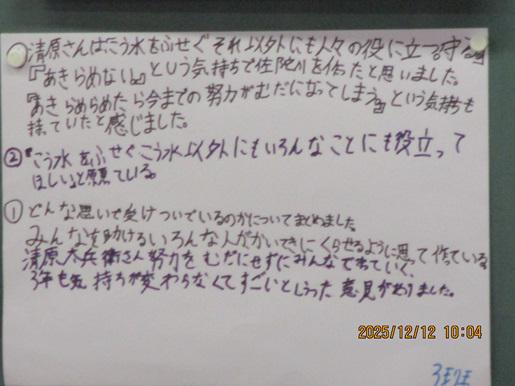 ①清原さんはこう水をふせぐそれ以外にも人々の役に立つ守る』
『あきらめない。』という気持ちで佐陀川を作ったと思いました。
『あきらめらめたら今までの努力がむだになってしまう。』という気持も
持ていたと感じました。
②『こう水をふせぐこう水以外にもいろんなことにも役立って
ほしいと願ている。
①どんな思いで受けついでいるのかについてまとめました。
みんなを助けるいろんな人がかいてきにくらせるように思って作っている
清原太兵衛さん努力をむだにせずにみんなで守っていく、
3年も気持ちが変わらなくてすごいといった意見がありました。
2025/12/12 10:04
3班